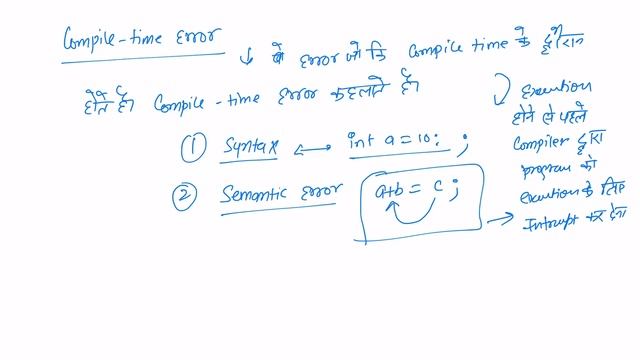 Compile-time Error
↓ वे Error जो कि Compile time के दौरान
होते है। Compile-time Error कहलाते है।
① Syntax ⟷ int a=10: ;
② Semantic Error a+b = c ;
Execution
होने से पहले
Compiler द्वारा
program को
execution के लिए
→ Interrupt कर देना